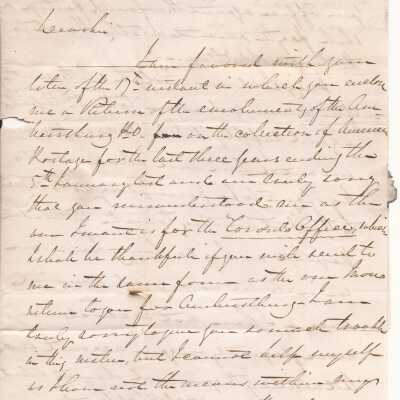 Dear Sir
I am favored with your
letter of the 17th instant in which you enclose
me a Return of the emoluments of the Am-
herstburg P.O. on the collection of American
Postage for the last three years ending the
5th January last and am truly sorry
that you misunderstood me as the
one I want is for the Toronto Office, which
I shall be thankful if you will send to
me in the same form as the one I now
return to you for Amherstburg. I am
truly sorry to give you so much trouble
in this matter, but I cannot help myself
as I have not the means within my